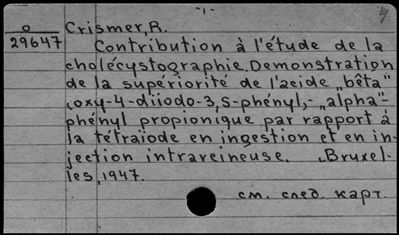 -1-
O
29647
Crismer, R.
Contribution à l'étude de la
cholécystographie. Demonstration
de la supériorité de l'acide „bêta"
(oxy-4-diiodo-3,5-phényl,-„alpha"-
phényl propionique par rapport à
la tétraiode en ingestion et en in-
jection intraveineuse. Bruxel-
les, 1947.
см. след. карт.